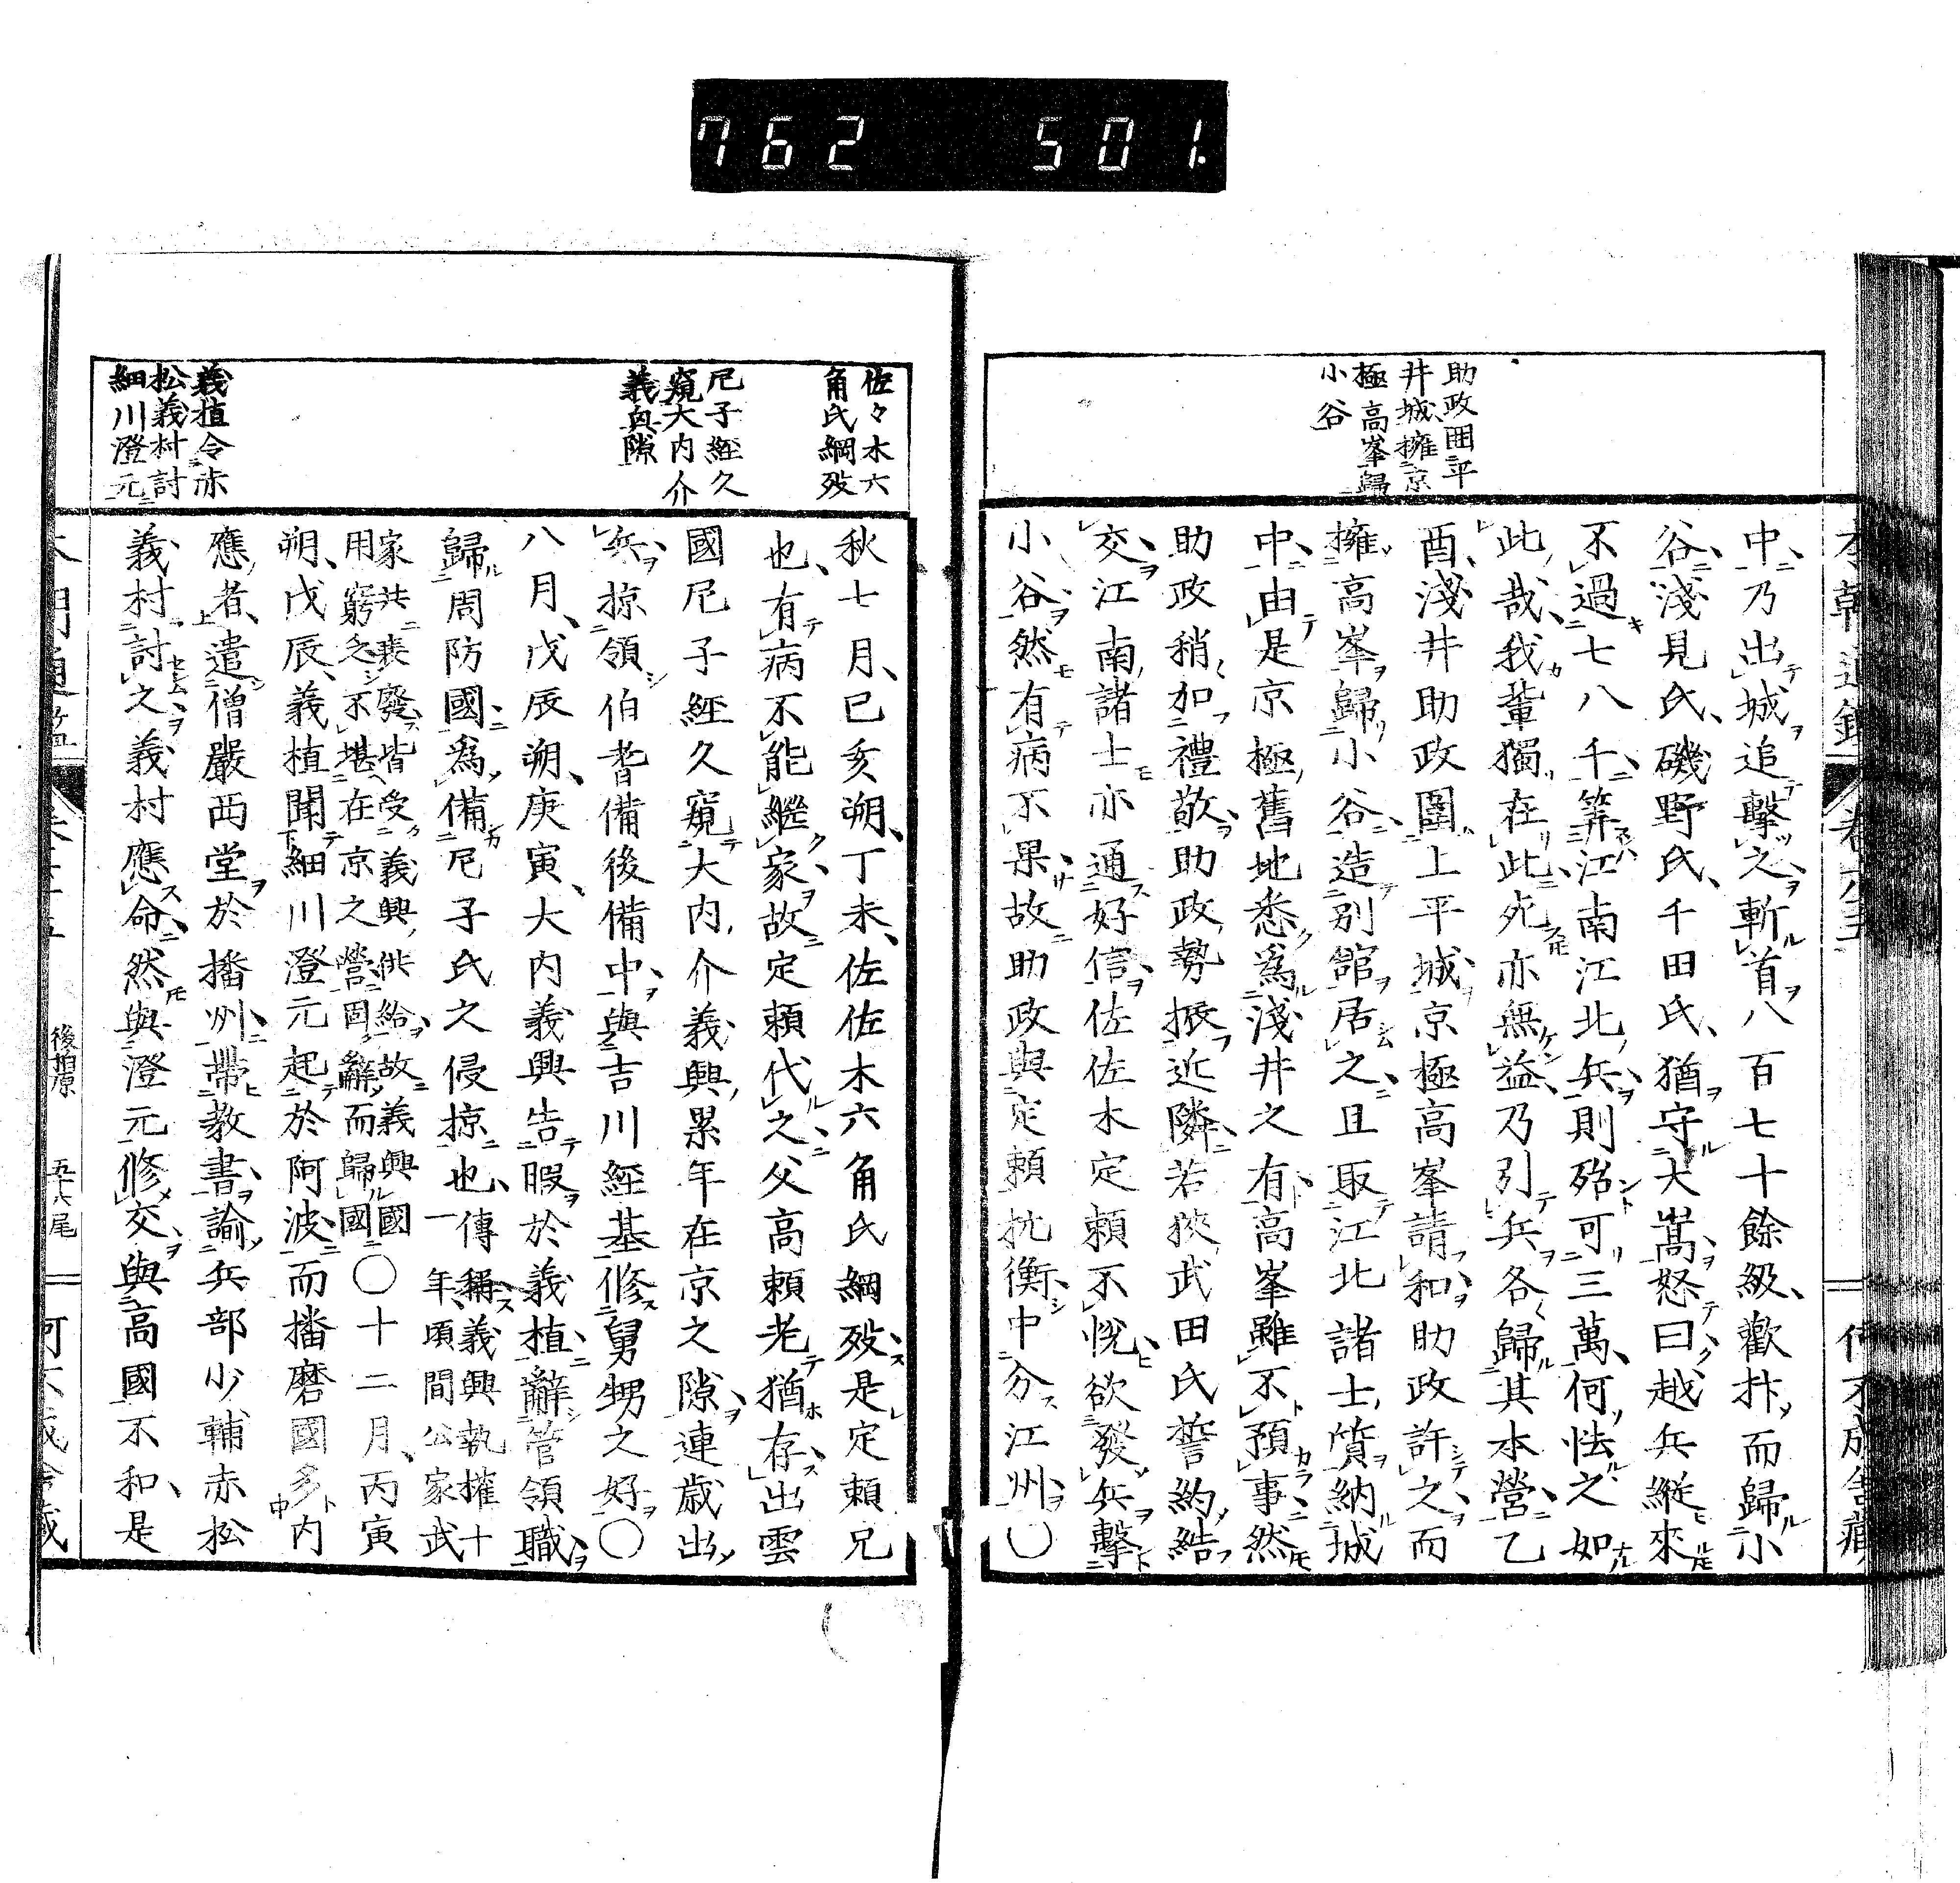 762 501.
助政囲平
井城擁京
極高峯歸
小谷
中乃出城追擊之斬首八百七十餘級歡抃而歸小
谷淺見氏磯野氏千田氏猶守大嵩怒曰越兵縦來
不過七八千筭江南江北兵則殆可三萬何怯之如
此哉我輩獨在此死亦無益乃引兵各歸其本營乙
酉淺井助政圍上平城京極高峯請和助政許之而
擁高峯歸小谷造別館居之且取江北諸士質納城
中由是京極舊地悉為淺井之有高峯雖不預事然
助政稍加禮敬助政勢振近隣若狹武田氏誓約結
交江南諸士亦通好信佐佐木定頼不悅欲發兵擊
小谷然有病不果故助政與定頼抗衡中分江州○
佐々木六
角氏綱歿
尼子經久
窺大内介
義興隙
義植令赤
松義村討
細川澄元
秋七月己亥朔丁未佐佐木六角氏綱歿是定頼兄
也有病不能繼家故定頼代之父高頼老猶存出雲
國尼子經久窺大内介義興累年在京之隙連歳出
兵掠領伯耆備後備中與吉川經基修舅甥之好○
八月戊辰朔庚寅大内義興告暇於義植辭管領職
歸周防國為備尼子氏之侵掠也一傳稱義興執權十
年頃間公家武
家共衰廢皆受義興供給故義興國
用窮乏不堪在京之營固辭而歸國○十二月丙寅
朔戊辰義植聞細川澄元起於阿波而播磨國多内
應者遣僧嚴西堂於播州帶教書諭兵部少輔赤松
義村討之義村應命然與澄元修交與高國不和是
後柏原 五十八尾